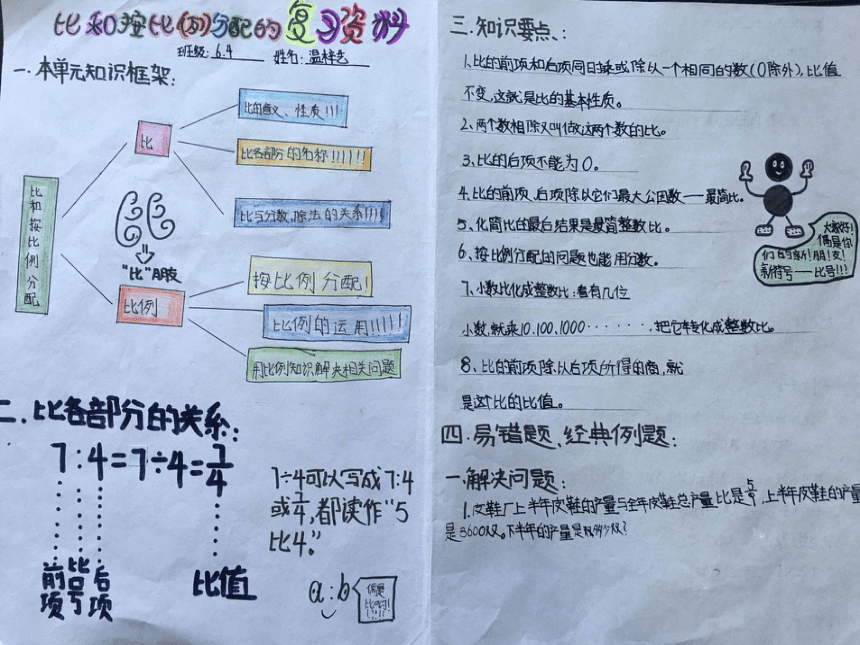 比和按比(例)分配的复习资料
班级:6.4 姓名:温梓艺
一.本单元知识框架:
比和按比例分配
比
比的意义、性质!!!
比各部分的名称!!!!!!
比与分数、除法的关系!!!!
"比"朋友
比例
按比例分配!
比例的运用!!!!!
用比例知识解决相关问题
二.比各部分的关系:
7:4=7÷4=7/4
前项 比号 后项 比值
7÷4可以写成7:4
或7/4,都读作"5
比4。"
a:b
偶是比号!!!!!!
三.知识要点、:
1、比的前项和后项同时乘或除以一个相同的数(0除外),比值
不变,这就是比的基本性质。
2、两个数相除又叫做这两个数的比。
3、比的后项不能为0。
4、比的前项、后项除以它们最大公因数——最简比。
5、化简比的最后结果是最简整数比。
6、按比例分配的问题也能用分数。
7、小数比化成整数比:看有几位
小数,就乘10、100、1000·······.把它转化成整数比。
8、比的前项除以后项所得的商,就
是这个比的比值。
大家好!偶是你们的新!朋!友!新符号——比号!!!
四.易错题、经典例题:
一.解决问题:
1.皮鞋厂上半年皮鞋的产量与全年皮鞋总产量比是5/9,上半年皮鞋的产量
是3600双。下半年的产量是多少双?